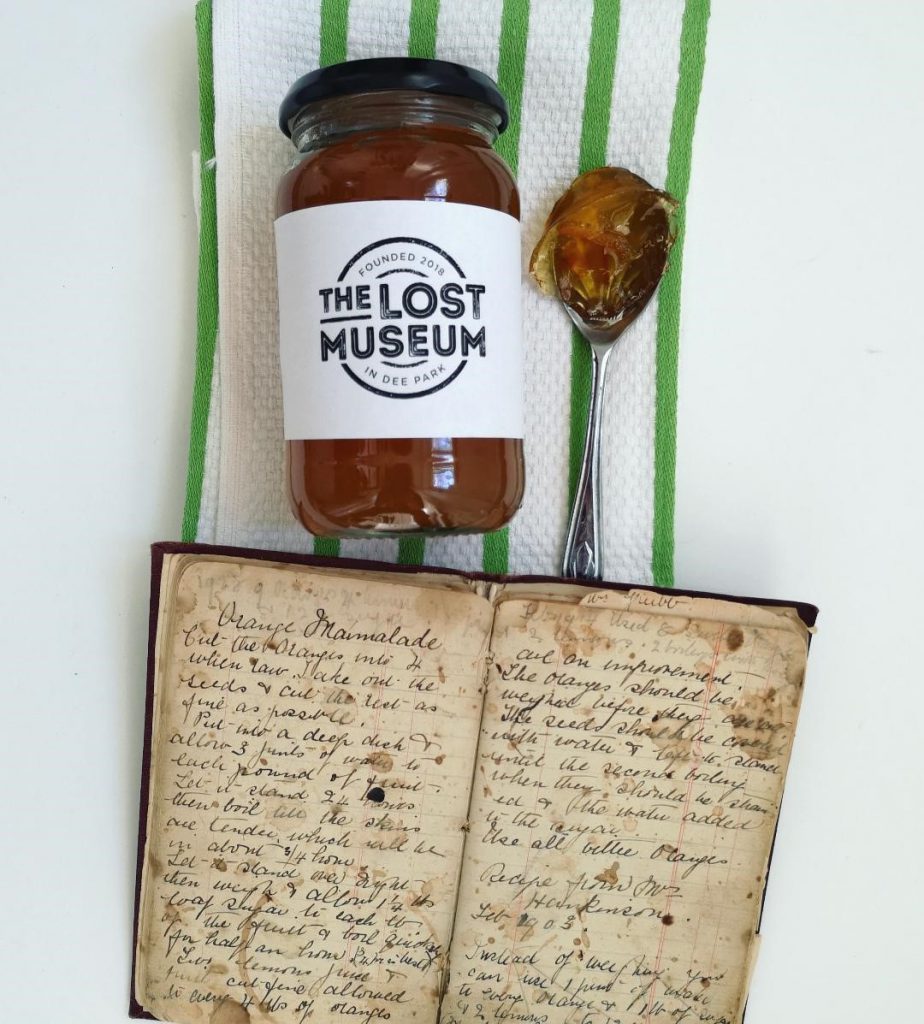 FOUNDED 2018
THE LOST
MUSEUM
IN DEE PARK
Orange Marmalade
Cut the Oranges into 4
when raw. Take out the
seeds & cut the rest as
fine as possible.
Put into a deep dish &
allow 3 pints of water to
each pound of fruit.
Let it stand 24 hours
then boil till the skins
are tender which will be
in about 3/4 hour
Let it stand over night
then weigh & allow 1 1/4 lbs
loaf sugar to each lb
of the fruit & boil quickly
for half an hour
Two lemons juice &
cut fine allowed
to every 4 lbs of oranges
used &
2 lemons
are an improvement.
The oranges should be
weighed before they are cut
The seeds should be covered
with water & left to stand
until the second boiling
when they should be strain
ed & the water added
to the sugar.
Use all bitter oranges.
Recipe from Mrs
Hankinson.
Feb 1903.
Instead of weighing you
can use 1 pint of water
to every orange & 1 lb of sugar
& 2 lemons to 12